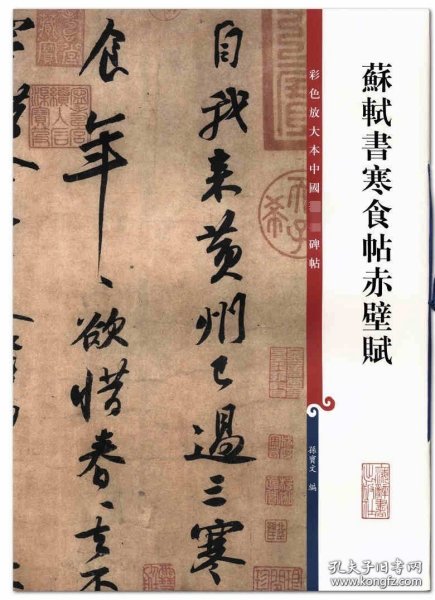 蘇軾書寒食帖赤壁賦
彩色放大本中國 碑帖
孫寶文 編
自我來黃州已過三寒
食年〻欲惜春〻去不
孔夫子旧书网
www.kongfz.com